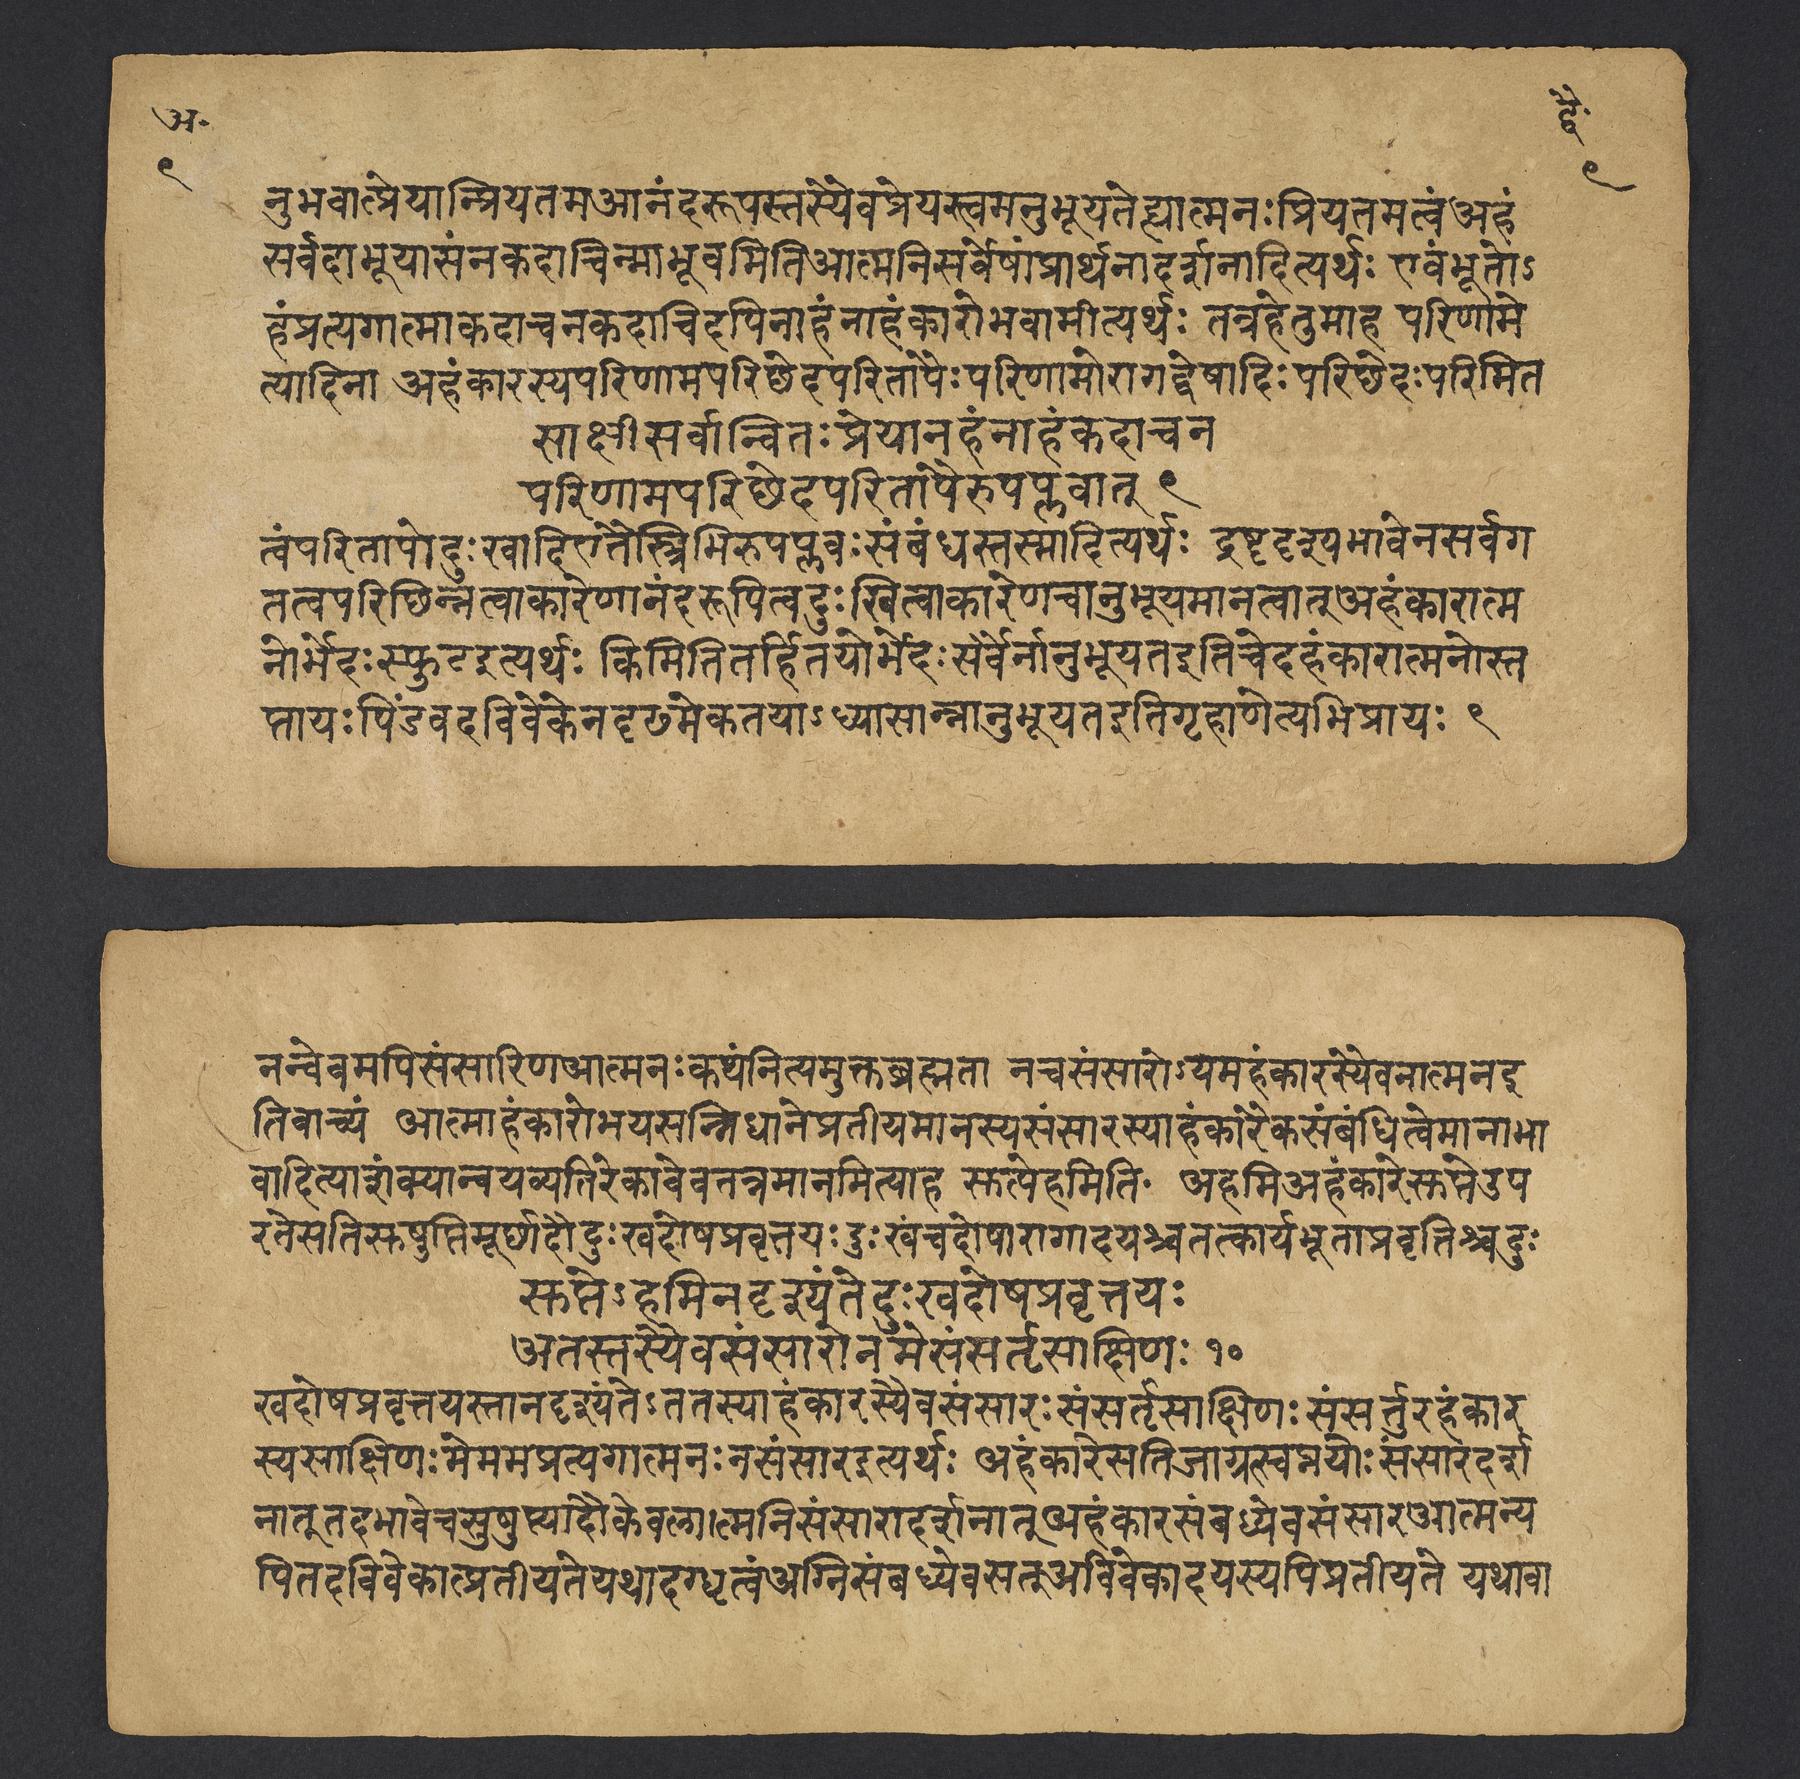 अ॰
द्वै॰
९
९
नुभवात्प्रेयान्प्रियतमआनंदरूपस्तस्यैवप्रेयस्त्वमनुभूयतेह्यात्मनःप्रियतमत्वंअहं
सर्वदाभूयासंनकदाचिन्माभूवमितिआत्मनिसर्वेषांप्रार्थनादर्शनादित्यर्थः एवंभूतोऽ
हंप्रत्यगात्माकदाचनकदाचिदपिनाहंनाहंकारोभवामीत्यर्थः तत्रहेतुमाह परिणामे
त्यादिना अहंकारस्यपरिणामपरिछेदपरितापैःपरिणामोरागद्वेषादिःपरिछेदःपरिमित
साक्षीसर्वान्वितःप्रेयानहंनाहंकदाचन
परिणामपरिछेदपरितापैरुपप्लवात् ९
त्वंपरितापोदुःखादिएतैस्त्रिभिरुपप्लवःसंबंधस्तस्मादित्यर्थः द्रष्टृदृश्यभावेनसर्वग
तत्वपरिछिन्नत्वाकारेणानंदरूपित्वदुःखित्वाकारेणचानुभूयमानत्वात्अहंकारात्म
नोर्भेदःस्फुटइत्यर्थः किमितितर्हितयोर्भेदःसर्वैर्नानुभूयतइतिचेदहंकारात्मनोस्त
प्तायःपिंडवदविवेकेनदृढमेकतयाऽध्यासान्नानुभूयतइतिगृहाणेत्यभिप्रायः ९
नन्वेवमपिसंसारिणआत्मनःकथंनित्यमुक्तब्रह्मता नचसंसारोऽयमहंकारस्यैवनात्मनइ
तिवाच्यं आत्माहंकारोभयसन्निधानेप्रतीयमानस्यसंसारस्याहंकारैकसंबंधित्वेमानाभा
वादित्याशंक्यान्वयव्यतिरेकावेवतत्रमानमित्याह स्तत्पेहमिति॰ अहमिअहंकारेस्तप्तेउप
रतेसतिस्तषुप्तिमूर्छादौदुःखदोषप्रवृत्तयःदुःखंचदोषारागादयश्चतत्कार्यभूताप्रवृत्तिश्चदुः
स्तप्तेऽहमिनदृश्यंतेदुःखदोषप्रवृत्तयः
अतस्तस्यैवसंसारोनमेसंसर्तृसाक्षिणः १०
खदोषप्रवृत्तयस्तानदृश्यंतेऽततस्याहंकारस्यैवसंसारःसंसर्तृसाक्षिणःसंसर्तुरहंकार
स्यसाक्षिणःमेममप्रत्यगात्मनःनसंसारइत्यर्थः अहंकारेसतिजाग्रत्स्वप्नयोःसंसारदर्श
नात्तदभावेचसुषुप्त्यादौकेवलात्मनिसंसारादर्शनात्अहंकारसंबध्येवसंसारआत्मन्य
पितदविवेकात्प्रतीयतेयथादग्धृत्वंअग्निसंबध्येवसत्अविवेकादयस्यपिप्रतीयते यथावा